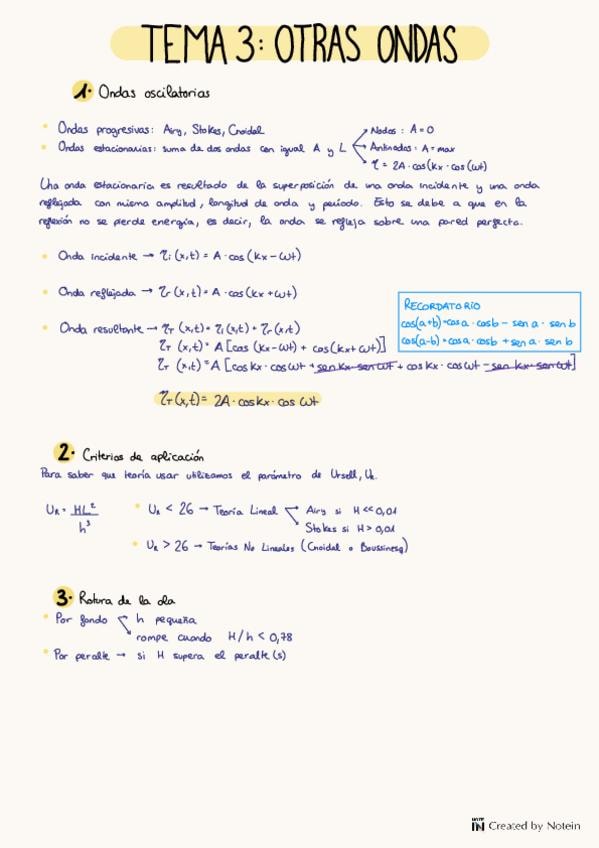 TEMA 3: OTRAS ONDAS
1. Ondas oscilatorias
Ondas progresivas: Airy, Stokes, Cnoidal
Ondas estacionarias: suma de dos ondas con igual A y L
Nodos: A=0
Antinodos: A=max
η = 2A·cos(kx·cos(ωt)
Una onda estacionaria es resultado de la superposición de una onda incidente y una onda
reflejada con misma amplitud, longitud de onda y período. Esto se debe a que en la
reflexión no se pierde energía, es decir, la onda se refleja sobre una pared perfecta.
Onda incidente → ηi (x,t) = A·cos(kx-ωt)
Onda reflejada → ηr (x,t) = A·cos(kx+ωt)
Onda resultante → ηT (x,t) = ηi(x,t) + ηr(x,t)
ηT (x,t) = A[cos (kx-ωt) + cos(kx+ωt)]
ηT (x,t) = A [coskx·cosωt + sen kx·sen ωt + coskx·cosωt - sen kx·sen ωt]
RECORDATORIO
cos(a+b)=cosa·cosb - sen a·sen b
cos(a-b)=cosa·cosb + sen a·sen b
ηT (x,t) = 2A·coskx·cos ωt
2. Criterios de aplicación
Para saber que teoría usar utilizamos el parámetro de Ursell, UR.
UR = HL²/h³
UR < 26 → Teoría Lineal
Airy si H<<0,01
Stokes si H>0,01
UR > 26 → Teorías No Lineales (Cnoidal o Boussinesq)
3. Rotura de la ola
Por fondo
h pequeña
rompe cuando H/h < 0,78
Por peralte → si H supera el peralte (s)
NOTE IN Created by Notein